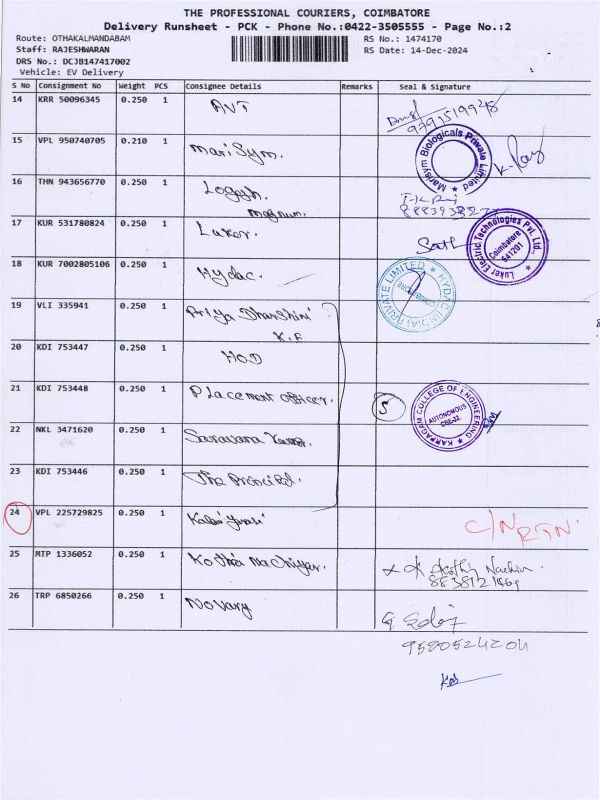 THE PROFESSIONAL COURIERS, COIMBATORE
Delivery Runsheet - PCK - Phone No.:0422-3505555 - Page No.:2
Route: OTHAKALMANDABAM RS No.: 1474170
Staff: RAJESHWARAN RS Date: 14-Dec-2024
DRS No.: DCJB147417002
Vehicle: EV Delivery
S No Consignment No Weight PCS Consignee Details Remarks Seal & Signature
14 KRR 50096345 0.250 1 AVT
15 VPL 950740705 0.210 1 Mari Sym.
Marisym Biologicals Private Limited
K. Raj
16 THN 943656770 0.250 1 Logesh.
Magnum.
17 KUR 531780824 0.250 1 Luker.
Luker Electric Technologies Pvt. Ltd.
Coimbatore
641201
18 KUR 7002805106 0.250 1 Hydac.
HYDAC (INDIA) PRIVATE LIMITED
19 VLI 335941 0.250 1 Priya Dharshini
K.E
20 KDI 753447 0.250 1 H.O.D
21 KDI 753448 0.250 1 Placement officer. 5
KARPAGAM COLLEGE OF ENGINEERING
AUTONOMOUS
CBE-32
22 NKL 3471620 0.250 1 Saravana
23 KDI 753446 0.250 1 The Principal.
24 VPL 225729825 0.250 1 C/N RTN
25 MTP 1336052 0.250 1 Kothai Nachiyar.
26 TRP 6850266 0.250 1 Novary
9580524204